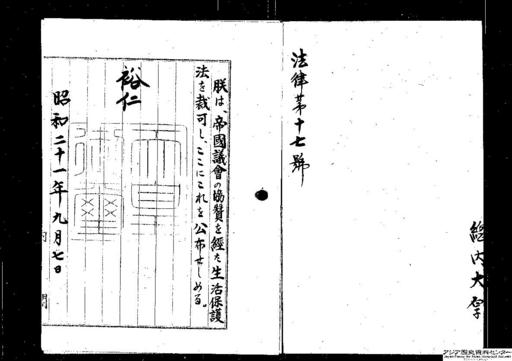 法律第十七號
朕は、帝國議會の協贊を經た生活保護
法を裁可し、ここにこれを公布せしめる。
裕仁
昭和二十一年九月七日
内閣
アジア歴史資料センター